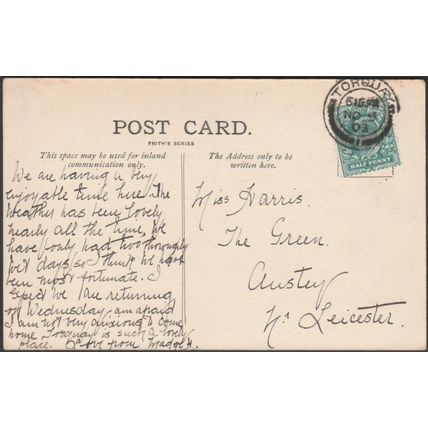 TORQUAY
6 15 PM
NO
03
HALF PENNY
POST CARD.
FRITH'S SERIES
This space may be used for inland
communication only.
The Address only to be
written here.
We are having a very
enjoyable time here. The
weather has been lovely
nearly all the time, we
have only had two thoroughly
wet days so I think we have
been most fortunate. I
expect we are returning
on Wednesday, am afraid
I am not very anxious to come
home Torquay is such a lovely
place. Love from Madge H.
Miss Harris.
The Green.
Anstey
Nr Leicester.